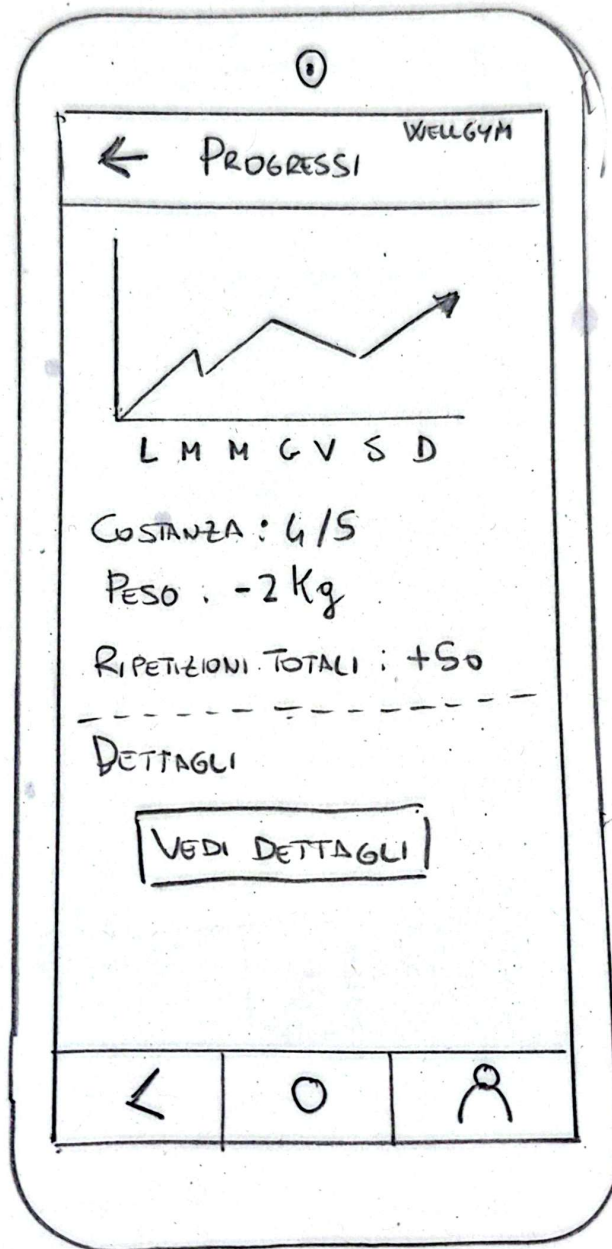 WELLGYM
← PROGRESSI
L M M G V S D
COSTANZA : 4/5
PESO : -2 Kg
RIPETIZIONI TOTALI : +50
DETTAGLI
VEDI DETTAGLI